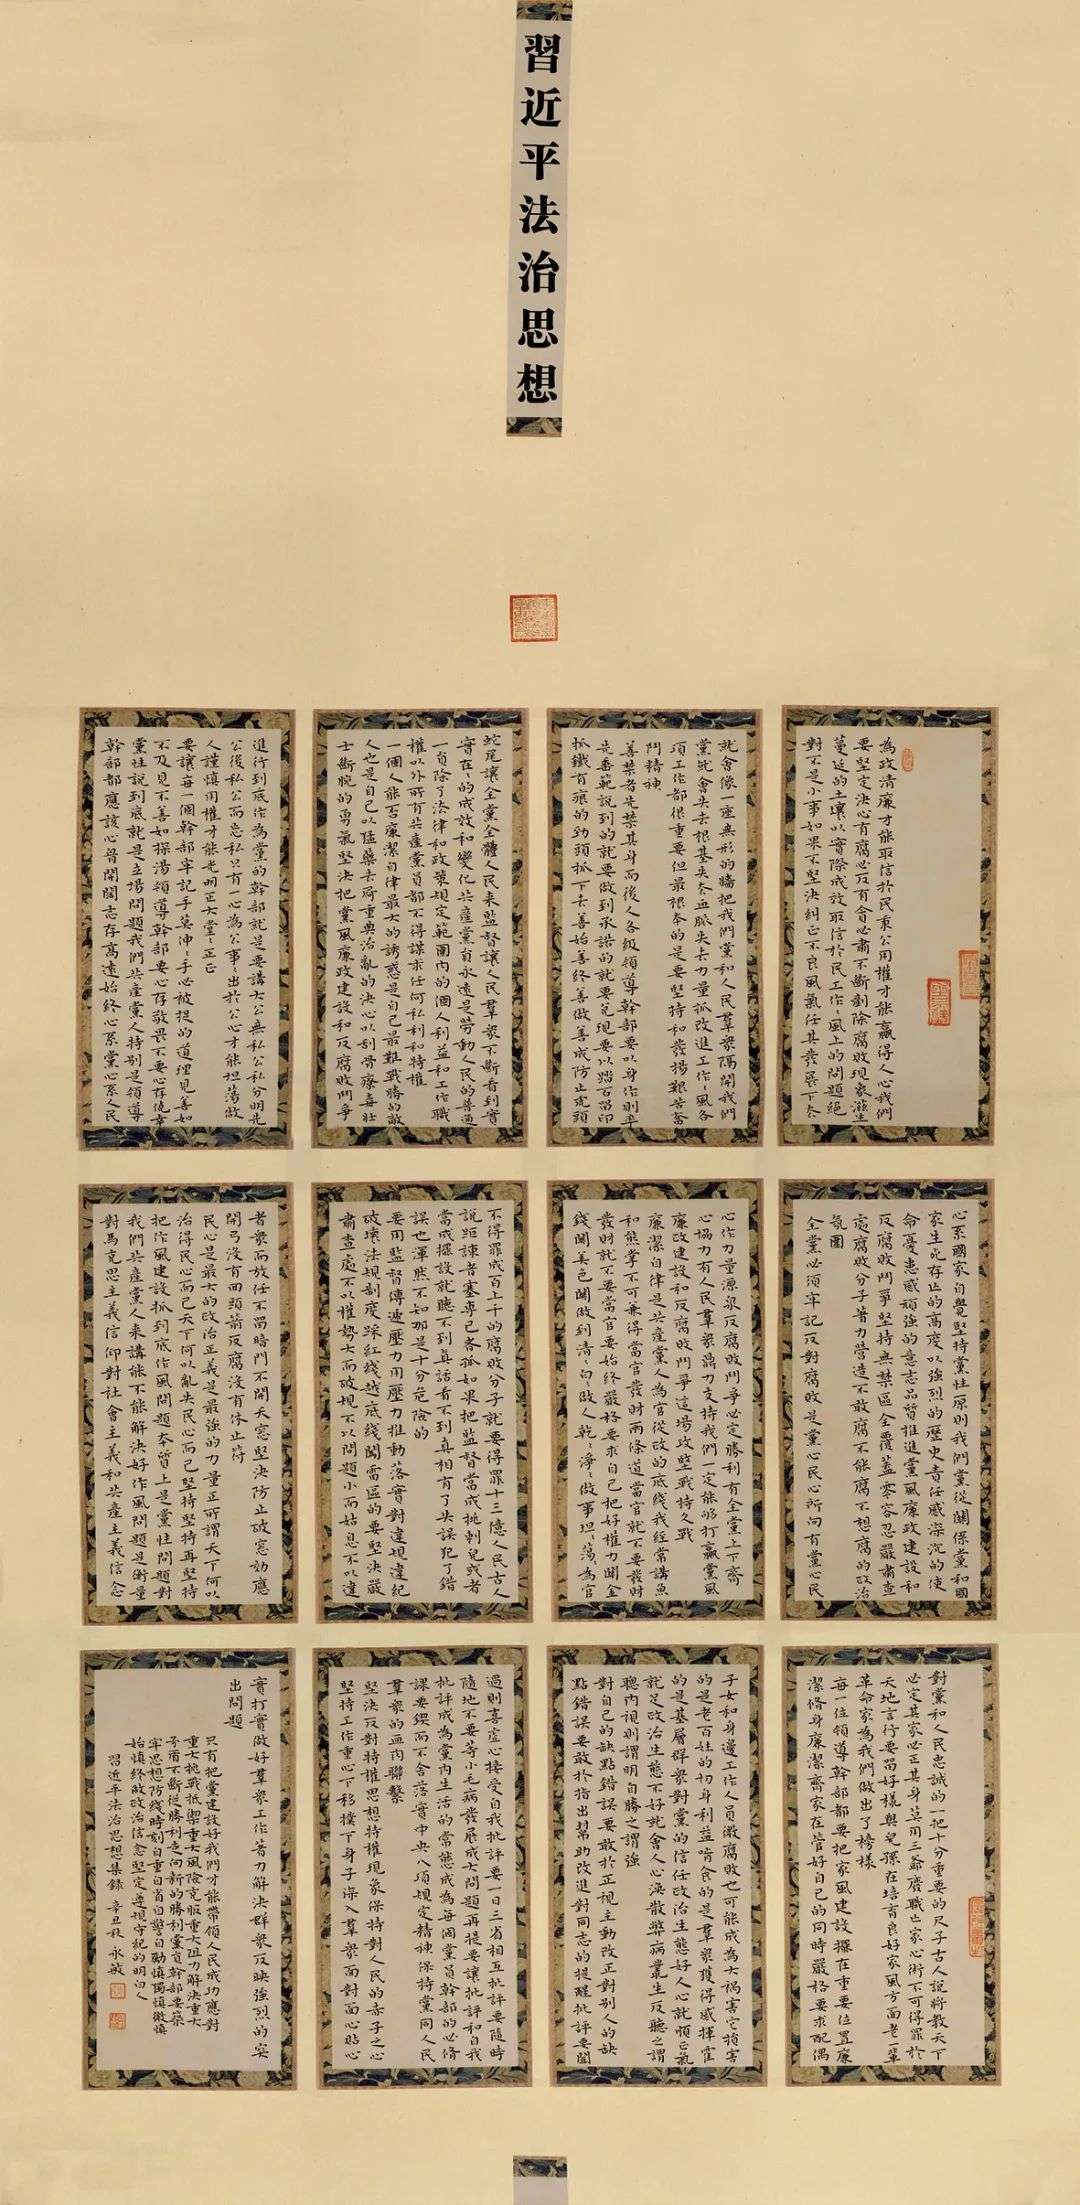 習近平法治思想
為政清廉才能取信於民秉公用權才能贏得人心我們
要堅定決心有腐必反有貪必肅不斷剷除腐敗現象滋生
蔓延的土壤以實際成效取信於民工作〻風上的問題絕
對不是小事如果不堅決糾正不良風氣任其發展下去
就會像一座無形的牆把我們黨和人民羣衆隔開我們
黨就會失去根基失去血脈失去力量抓改進工作〻風各
項工作都很重要但最根本的是要堅持和發揚艱苦奮
鬥精神
善禁者先禁其身而後人各級領導幹部要以身作則率
先垂範說到的就要做到承諾的就要兌現要以踏石留印
抓鐵有痕的勁頭抓下去善始善終善做善成防止虎頭
蛇尾讓全黨全體人民來監督讓人民羣衆不斷看到實
實在〻的成效和變化共產黨員永遠是勞動人民的普通
一員除了法律和政策規定範圍內的個人利益和工作職
權以外所有共產黨員都不得謀求任何私利和特權
一個人能否廉潔自律最大的誘惑是自己最難戰勝的敵
人也是自己以猛藥去疴重典治亂的決心以刮骨療毒壯
士斷腕的勇氣堅決把黨風廉政建設和反腐敗鬥爭
進行到底作為黨的幹部就是要講大公無私公私分明先
公後私公而忘私只有一心為公事〻出於公心才能坦蕩做
人謹慎用權才能光明正大堂〻正正
要讓每一個幹部牢記手莫伸〻手必被捉的道理見善如
不及見不善如探湯領導幹部要心存敬畏不要心存僥幸
黨性說到底就是立場問題我們共產黨人特別是領導
幹部都應該心胸開闊志存高遠始終心系黨心系人民
心系國家自覺堅持黨性原則我們黨從關係黨和國
家生死存亡的高度以強烈的歷史責任感深沉的使
命憂患感頑強的意志品質推進黨風廉政建設和
反腐敗鬥爭堅持無禁區全覆蓋零容忍嚴肅查
處腐敗分子着力營造不敢腐不能腐不想腐的政治
氛圍
全黨必須牢記反對腐敗是黨心民心所向有黨心民
心作力量源泉反腐敗鬥爭必定勝利有全黨上下齊
心協力有人民羣衆鼎力支持我們一定能夠打贏黨風
廉政建設和反腐敗鬥爭這場攻堅戰持久戰
廉潔自律是共產黨人為官從政的底綫我經常講魚
和熊掌不可兼得當官發財兩條道當官就不要發財
發財就不要當官要始終嚴格要求自己把好權力關金
錢關美色關做到清〻白〻做人乾〻淨〻做事坦〻蕩〻為官
不得罪成百上千的腐敗分子就要得罪十三億人民古人
說距諫者塞專己者孤如果把監督當成挑刺兒或者
當成擺設就聽不到真話看不到真相有了失誤犯了錯
誤也渾然不知那是十分危險的
要用監督傳遞壓力用壓力推動落實對違規違紀
破壞法規制度踩紅綫越底綫闖雷區的要堅決嚴
肅查處不以權勢大而破規不以問題小而姑息不以違
者衆而放任不留暗門不開天窗堅決防止破窗効應
開弓沒有回頭箭反腐沒有休止符
民心是最大的政治正義是最強的力量正所謂天下何以
治得民心而已天下何以亂失民心而已堅持堅持再堅持
把作風建設抓到底作風問題本質上是黨性問題對
我們共產黨人來講能不能解決好作風問題是衡量
對馬克思主義信仰對社會主義和共產主義信念
對黨和人民忠誠的一把十分重要的尺子古人說將教天下
必定其家必正其身莫用三爺廢職亡家心術不可得罪於
天地言行要留好樣與兒孫在培育良好家風方面老一輩
革命家為我們做出了榜樣
每一位領導幹部都要把家風建設擺在重要位置廉
潔修身廉潔齊家在管好自己的同時嚴格要求配偶
子女和身邊工作人員微腐敗也可能成為大禍害它損害
的是老百姓的切身利益啃食的是羣衆獲得感揮霍
的是基層群衆對黨的信任政治生態好人心就順正氣
就足政治生態不好就會人心渙散弊病叢生反聽之謂
聰內視則謂明自勝之謂強
對自己的缺點錯誤要敢於正視主動改正對別人的缺
點錯誤要敢於指出幫助改進對同志的提醒批評要聞
過則喜虛心接受自我批評要一日三省相互批評要隨時
隨地不要等小毛病發展成大問題再提要讓批評和自我
批評成為黨內生活的常態成為每個黨員幹部的必修
課要鍥而不舍落實中央八項規定精神保持黨同人民
羣衆的血肉聯繫
堅決反對特權思想特權現象保持對人民的赤子之心
堅持工作重心下移撲下身子深入羣衆面對面心貼心
實打實做好羣衆工作着力解決群衆反映強烈的突
出問題
只有把黨建設好我們才能帶領人民成功應對
重大挑戰抵禦重大風險克服重大阻力解決重大
矛盾不斷從勝利走向新的勝利黨員幹部要築
牢思想防綫時刻自重自省自警自勵慎獨慎微慎
始慎終做政治信念堅定遵規守紀的明白人
習近平法治思想集錄 辛丑秋 永敏